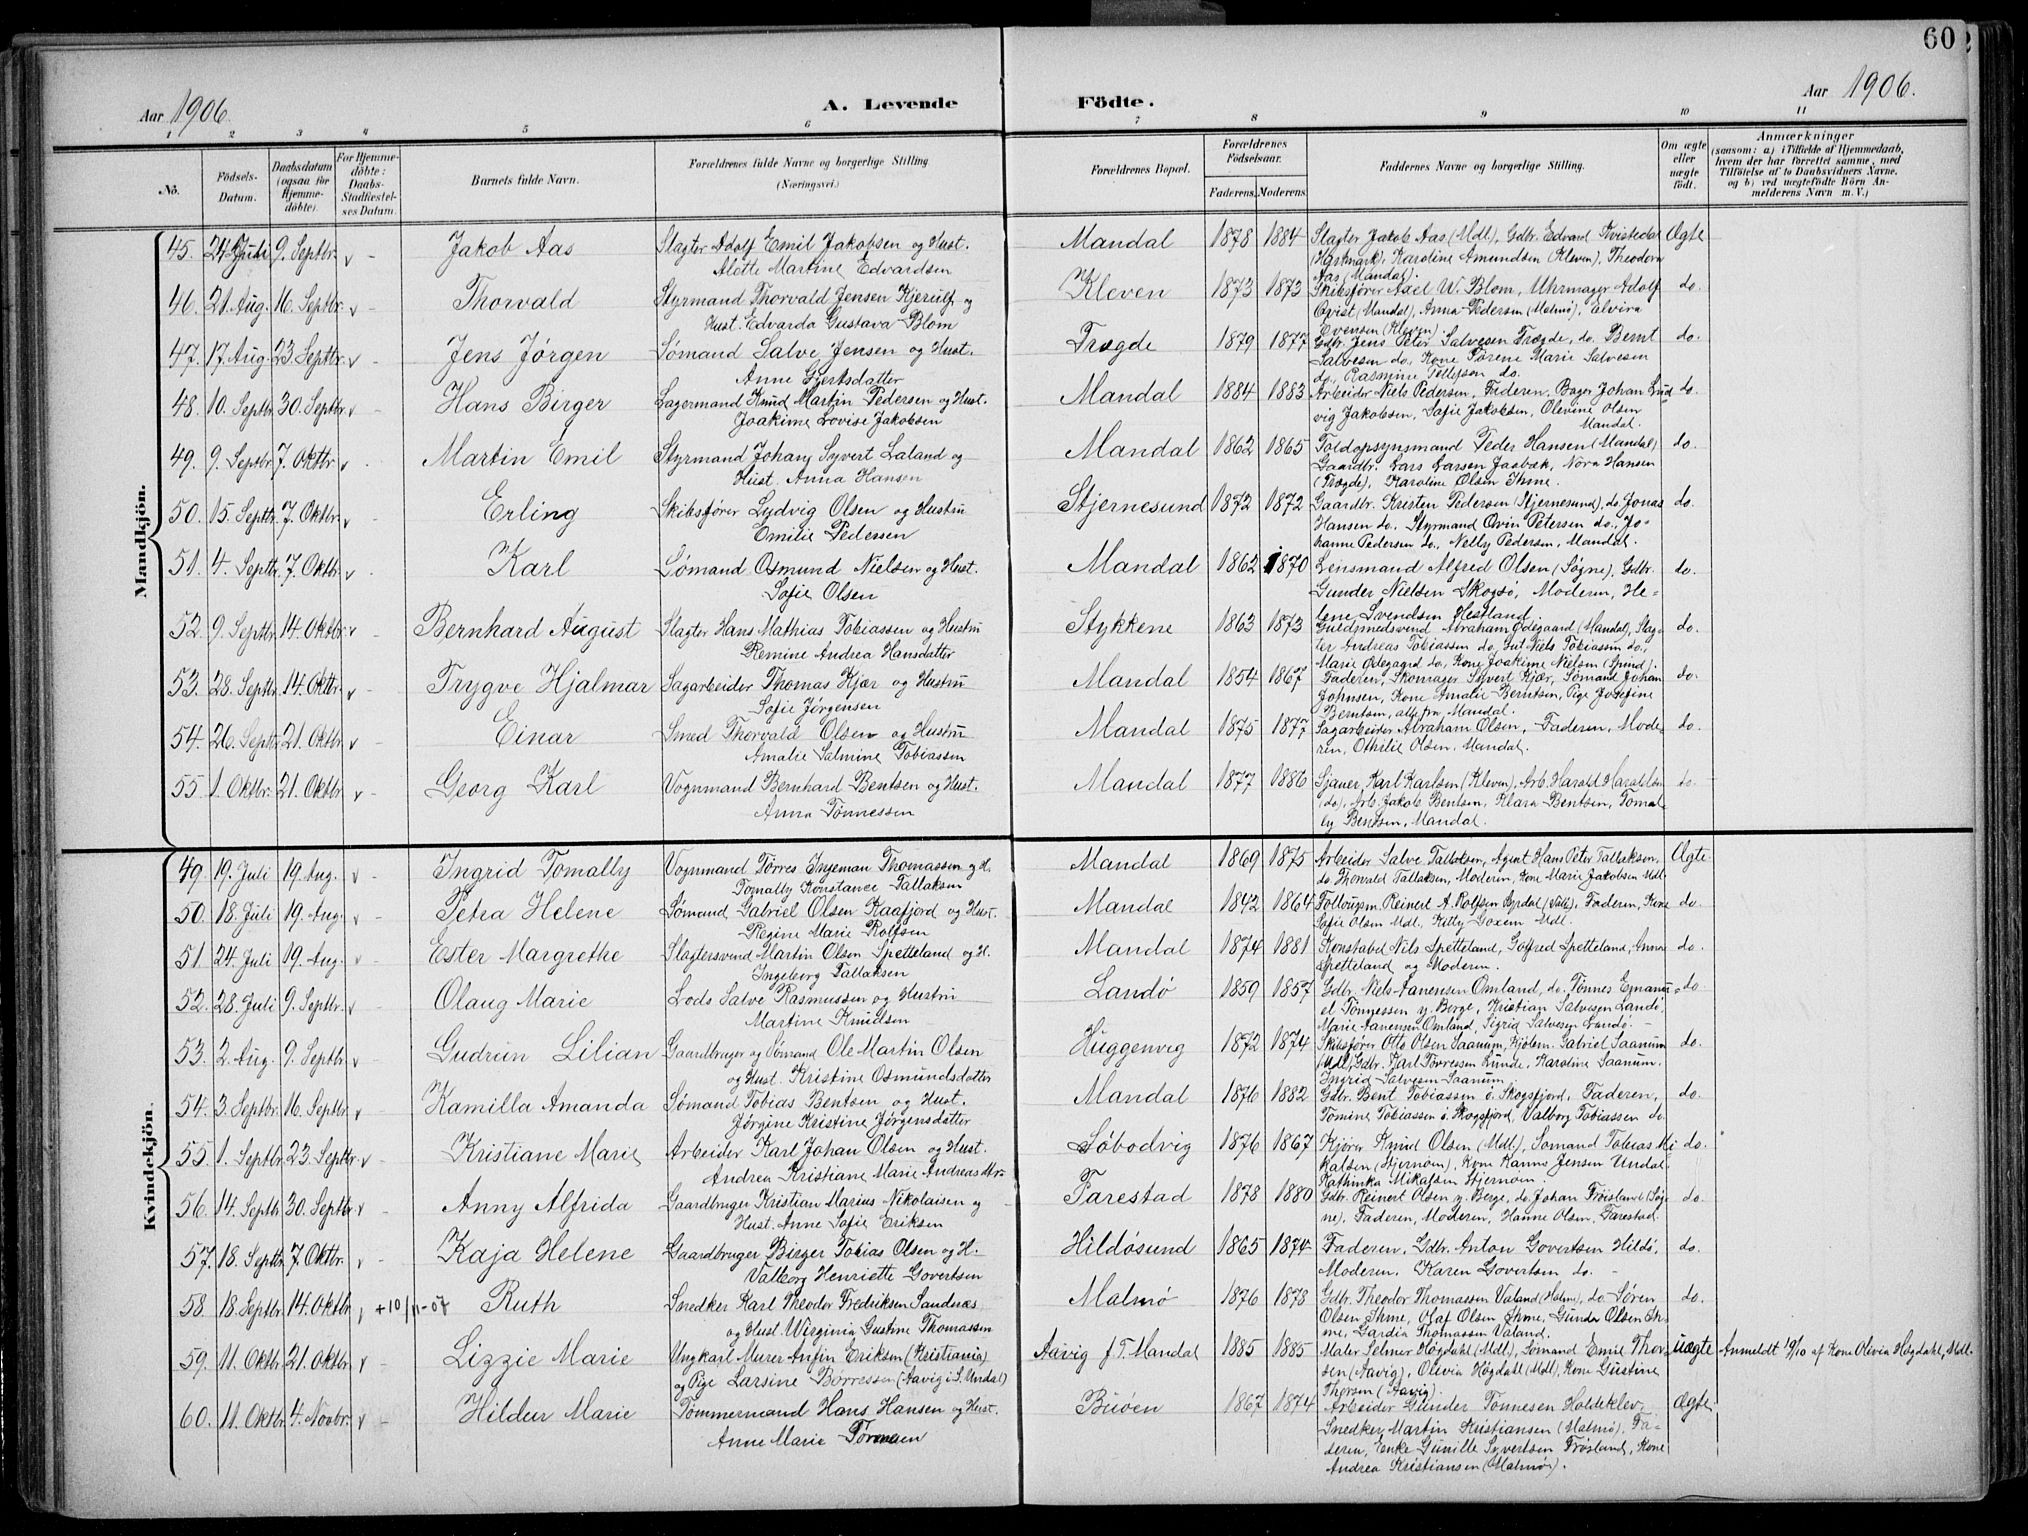 60
Aar 1906.
A. Levende
Födte.
Aar 1906.
1 2 3 4 5 6 7 8 9 10 11
No.
Födsels-Datum.
Daabsdatum (ogsaa for Hjemme-döbte).
For Hjemme-döbte: Daabs-Stadfæstel-ses Datum.
Barnets fulde Navn.
Forældrenes fulde Navne og borgerlige Stilling (Næringsvei.)
Forældrenes Bopæl.
Forældrenes Födselsaar.
Faderens. Moderens.
Faddernes Navne og borgerlige Stilling.
Om ægte eller uægte födt.
Anmærkninger (saasom: a.) i Tilfælde af Hjemmedaab, hvem der har forrettet samme, med Tilföielse af to Daabsvidners Navne, og b.) ved uægtefödte Börn Anmelderens Navn m. V.)
Mandkjön.
45. 24 Juli 9. Septbr. v - Jakob Aas Slagter Adolf Emil Jakobsen og Hust. Mandal 1878 1884 Slagter Jakob Aas (Mdl), Gdbr. Edvard Kvistedal Ægte
Alette Martine Edvardsen (Hartmark), Karoline Amundsen (Kleven), Theodora
Aas (Mandal).
46. 21. Aug. 16. Septbr. v - Thorvald Styrmand Thorvald Jensen Kjerulf og Kleven 1873 1873 Skibsfører Axel W. Blom, Uhrmager Adolf do.
Hust. Edvarda Gustava Blom Qvist (Mandal), Anna Pedersen (Malmø), Elvira
Evensen (Kleven).
47. 17. Aug. 23. Septbr. v - Jens Jørgen Sømand Salve Jensen og Hust. Trægde 1879 1877 Gdbr. Jens Peter Salvesen Trægde, do. Bernt do.
Anne Gjertsdatter Salvesen do., Kone Tørene Marie Salvesen
do., Rasmine Tellefsen do.
48. 10. Septbr. 30. Septbr. v - Hans Birger Lagermand Knud Martin Pedersen og Hust. Mandal 1884 1883 Arbeider Niels Pedersen, Faderen, Bager Johan Lud do.
Joakime Lovise Jakobsen vig Jakobsen, Sofie Jakobsen, Olevine Olsen
Mandal.
49. 9. Septbr. 7. Oktbr. v Martin Emil Styrmand Johany Syvert Laland og Mandal 1862 1865 Toldopsynsmand Peder Hansen (Mandal) do.
Hust. Anna Hansen Gaardbr. Lars Larsen Jaabæk, Nora Hansen
(Trægde), Karoline Olsen Ihme.
50. 15. Septbr. 7. Oktbr. v - Erling Skibsfører Lydvig Olsen og Hustru Stjernesund 1872 1872 Gaardbr. Kristen Pedersen (Stjernesund), do. Jonas do.
Emilie Pedersen Hansen do. Styrmand Qvin Petersen do., Jo-
hanne Pedersen do., Nelly Pedersen, Mandal.
51. 4. Septbr. 7. Oktbr. v - Karl Sømand Osmund Nielsen og Hust. Mandal 1862 1870 Lensmand Alfred Olsen (Søgne), Gdbr. do.
Sofie Olsen Gunder Nielsen Skogsø, Moderen, He-
lene Svendsen Hestland
52. 9. Septbr. 14. Oktbr. v - Bernhard August Slagter Hans Mathias Tobiassen og Hustru Stykkene 1863 1873 Guldsmedsvend Abraham Ødegaard (Mandal), Slag- do.
Remine Andrea Hansdatter ter Andreas Tobiassen do., Gut Niels Tobiassen do.,
Marie Ødegaard do, Kone Joakime Nielsen (Spind).
53. 28. Septbr. 14. Oktbr. v - Trygve Hjalmar Sagarbeider Thomas Kjær og Hustru Mandal 1854 1867 Faderen, Skomager Syvert Kjær, Sømand Johan do.
Sofie Jørgensen Johnsen, Kone Amalie Berntsen, Pige Josefine
Berntsen, alle fra Mandal.
54. 26. Septbr. 21. Oktbr. v - Einar Smed Thorvald Olsen og Hustru Mandal 1875 1877 Sagarbeider Abraham Olsen, Faderen, Mode- do.
Amalie Salmine Tobiassen ren, Othilie Olsen, Mandal.
55 1. Oktbr. 21. Oktbr. v - Georg Karl Vognmand Bernhard Bentsen og Hust. Mandal 1877 1886 Sjauer Karl Karlsen (Kleven), Arb. Harald Haraldsen do.
Anna Tønnessen (do), Arb. Jakob Bentsen, Klara Bentsen, Tomal-
ly Bentsen, Mandal.
Kvindekjön.
49 19. Juli 19. Aug. v - Ingrid Tomally Vognmand Tørres Ingeman Thomassen og H. Mandal 1869 1875 Arbeider Salve Tallaksen, Agent Hans Peter Tallaksen, Ægte
Tomally Konstance Tallaksen do. Thorvald Tallaksen, Moderen, Kone Marie Jakobsen Mdl.
50. 18. Juli 19. Aug. v - Petra Helene Sømand Gabriel Olsen Kaafjord og Hust. Mandal 1842 1864 Reinert A. Rolfsen, Faderen, Kone do.
Regine Marie Rolfsen Sofie Olsen Mdl., Kitty Goxem Mdl.
51. 24. Juli 19. Aug. v - Ester Margrethe Slagtersvend Martin Olsen Spetteland og H. Mandal 1874 1881 Konstabel Nils Spetteland, Gotfred Spetteland, Anna do.
Ingeborg Tallaksen Spetteland og Moderen.
52. 28. Juli 9. Septbr. v - Olaug Marie Lods Salve Rasmussen og Hustru Landø 1859 1857 Gdbr. Niels Aanensen Omland, do. Tønnes Emanu- do
Martine Knudsen el Tønnessen y. Berge, Kristian Salvesen Landø,
Marie Aanensen Omland, Sigrid Salvesen Landø.
53. 2. Aug. 9. Septbr. v - Gudrun Lilian Gaardbruger og Sømand Ole Martin Olsen Huggenvig 1872 1874 Skibsfører Otto Olsen Saanum, Gabriel Saanum do.
og Hust. Kristine Osmundsdatter (Mdl), Gdbr. Karl Tørressen Lunde, Karoline Saanum,
Ingrid Salvesen Saanum.
54. 3. Septbr. 16. Septbr. v - Kamilla Amanda Sømand Tobias Bentsen og Hust. Mandal 1876 1882 Gdbr. Bent Tobiassen i. Skogsfjord, Faderen, do.
Jørgine Kristine Jørgensdatter Tomine Tobiassen i. Skogsfjord, Valborg Tobiassen do.
55. 1. Septbr. 23. Septbr. v - Kristiane Marie Arbeider Karl Johan Olsen og Hust. Søbodvig 1876 1867 Kjører Knud Olsen (Mdl.), Sømand Tobias Mi do.
Andrea Kristiane Marie Andreasdtr. kalsen (Hjernøen), Kone Kanne Jensen Undal.
Kathinka Mikalsen Hjernøen.
56. 14. Septbr. 30. Septbr. v - Anny Alfrida Gaardbruger Kristian Marius Nikolaisen og Farestad 1878 1880 Gdbr. Reinert Olsen y. Berge, do. Johan Frøisland (Søg- do.
Hust. Anne Sofie Eriksen ne), Faderen, Moderen, Hanne Olsen, Farestad.
57. 18. Septbr. 7. Oktbr. v - Kaja Helene Gaardbruger Birger Tobias Olsen og H. Hildøsund 1865 1874 Faderen, Gdbr. Anton Govertsen Hildø, do.
Valborg Henriette Govertsen Moderen, Karen Govertsen do.
58. 18. Septbr. 14. Oktbr. v +10/11-07 Ruth Snedker Karl Theodor Fredriksen Sandnæs Malmø 1876 1878 Gdbr. Theodor Thomassen Valand (Holm), do. Søren do.
og Hust. Wirginia Gustine Thomassen Olsen Ihme, Olaf Olsen Ihme, Gunder Olsen Ih-
me, Gardia Thomassen Valand.
59. 11. Oktbr. 21. Oktbr. v - Lizzie Marie Ungkarl Murer Anfin Eriksen (Kristiania) Aavig f. T. Mandal 1885 1885 Maler Selmer Høgdahl (Mdl), Sømand Emil Thor- uægte Anmeldt 19/10 af Kone Olivia Høgdahl, Mdl.
og Pige Larsine Børressen (Aavig i S. Undal) sen (Aavig), Olivia Høgdahl (Mdl), Kone Gustine
Thorsen (Aavig).
60. 11. Oktbr. 4. Novbr. v - Hildur Marie Tømmermand Hans Hansen og Hust. Buøen 1867 1874 Arbeider Gunder Tønnesen Holdeklev, Ægte
Anne Marie Snedker Martin Kristiansen (Malmø), Fa-
deren, Enke Gunille Syvertsen Frøsland, Kone
Andrea Kristiansen (Malmø).